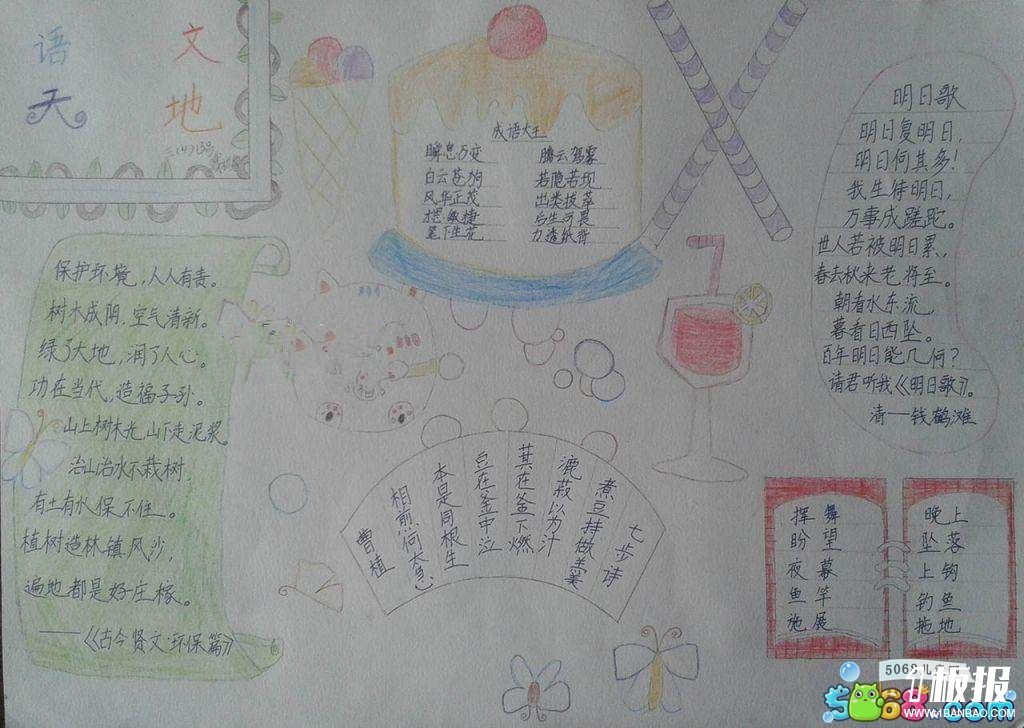 语文
天地
保护环境，人人有责。
树木成阴，空气清新。
绿了大地，润了人心。
功在当代，造福子孙。
山上树木光，山下走泥浆。
治山治水不栽树，
有土有水保不住。
植树造林镇风沙，
遍地都是好庄稼。
——《古今贤文·环保篇》
成语大王
瞬息万变 腾云驾雾
白云苍狗 若隐若现
风华正茂 出类拔萃
敏捷 后生可畏
笔下生花 力透纸背
七步诗
煮豆持做羹
漉菽以为汁
萁在釜下燃
豆在釜中泣
本是同根生
相煎何太急
曹植
明日歌
明日复明日，
明日何其多！
我生待明日，
万事成蹉跎。
世人若被明日累，
春去秋来老将至。
朝看水东流，
暮看日西坠。
百年明日能几何？
请君听我《明日歌》。
清——钱鹤滩
挥舞
盼望
夜幕
鱼竿
施展
晚上
坠落
上钩
钓鱼
拖地
5068儿
板报
WWW.1BANBAO.COM